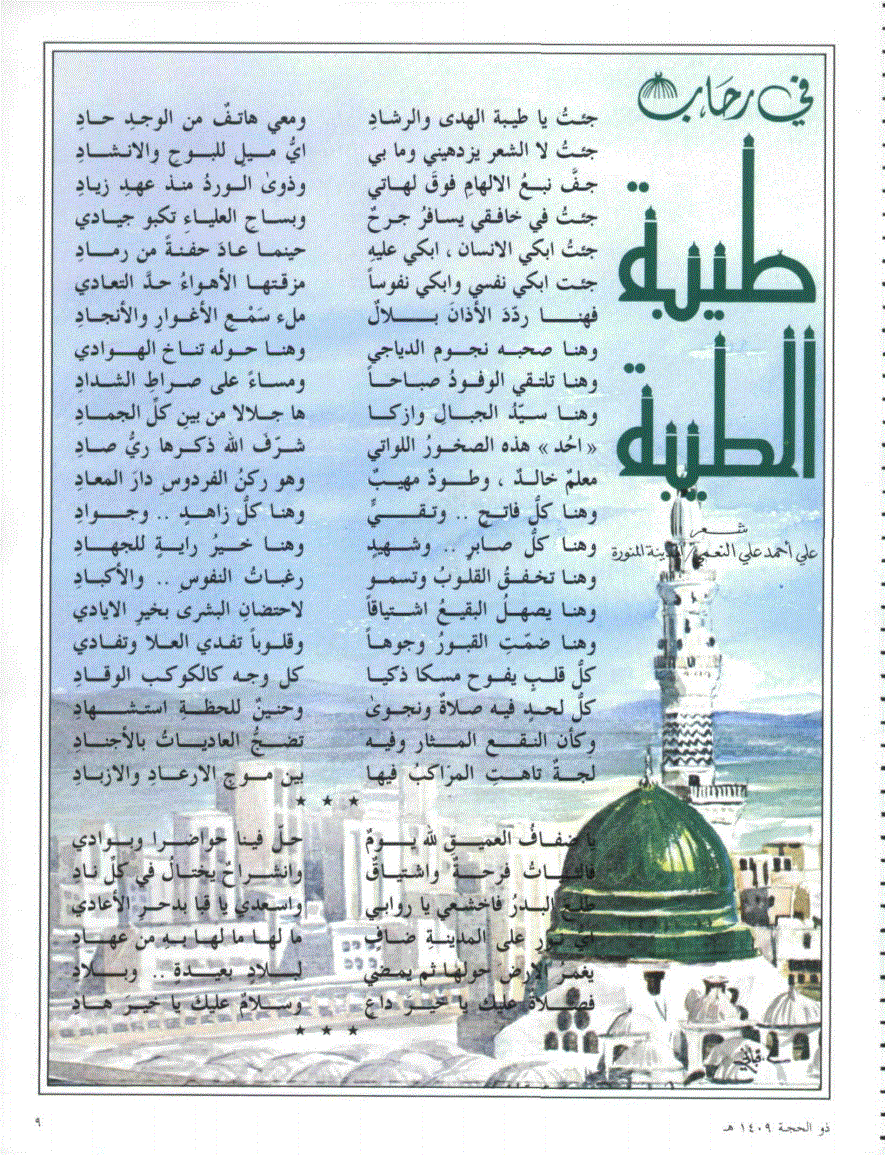 في رحاب
طيبة
الطيبة
شعر
علي أحمد علي النعمي / المدينة المنورة
جئتُ يا طيبة الهدى والرشادِ ومعي هاتفٌ من الوجدِ حادِ
جئتُ لا الشعر يزدهيني وما بي ايُّ ميلٍ للبوحِ والانشادِ
جفَّ نبعُ الالهامِ فوقَ لهاتي وذوىٰ الوردُ منذ عهدِ زيادِ
جئتُ في خافقي يسافرُ جرحٌ وبساحِ العلياءِ تكبو جيادي
جئتُ ابكي الانسان ، ابكي عليهِ حينما عادَ حفنةً من رمادِ
جئت ابكي نفسي وابكي نفوساً مزقتها الأهواءُ حدَّ التعادي
فهنا ردّدَ الأذانَ بلالٌ ملء سَمْعِ الأغوارِ والأنجادِ
وهنا صحبه نجوم الدياجي وهنا حوله تناخ الهوادي
وهنا تلتقي الوفودُ صباحاً ومساءً على صراطِ الشدادِ
وهنا سيّدُ الجبالِ وازكا ها جلالا من بين كلِّ الجمادِ
« احُد » هذه الصخورُ اللواتي شرّفَ الله ذكرها ريُّ صادِ
معلمٌ خالدٌ ، وطودٌ مهيبٌ وهو ركنُ الفردوسِ دارَ المعادِ
وهنا كلُّ فاتحٍ .. وتقيٍّ وهنا كلُّ زاهدٍ .. وجوادِ
وهنا كلُّ صابرٍ .. وشهيدٍ وهنا خيرُ رايةٍ للجهادِ
وهنا تخفقُ القلوبُ وتسمو رغباتُ النفوسِ .. والأكبادِ
وهنا يصهلُ البقيعُ اشتياقاً لاحتضانِ البشرى بخيرِ الايادي
وهنا ضمّتِ القبورُ وجوهاً وقلوباً تفدي العلا وتفادي
كلُّ قلبٍ يفوح مسكا ذكيا كل وجه كالكوكب الوقادِ
كلُّ لحدٍ فيه صلاةٌ ونجوىٰ وحنينٌ للحظةِ استشهادِ
وكأن النقع المثار وفيه تضجُّ العادياتُ بالأجنادِ
لجةٌ تاهتِ المراكبُ فيها بين موجِ الارعادِ والازبادِ
★ ★ ★
يا ضفافُ العميقِ لله يومٌ حلّ فينا حواضرا وبوادي
فالنيات فرحةٌ واشتياقٌ وانشراحٌ يختالُ في كلِّ نادِ
طلع البدرُ فاخشعي يا روابي واسعدي يا قبا بدحرِ الأعادي
أيُّ نورٍ على المدينةِ ضافٍ ما لها ما لها بهِ من عهادِ
يغمرُ الارضَ حولها ثم يمضي لبلادٍ بعيدةٍ .. وبلادِ
فصلاةٌ عليك يا خيرَ داعٍ وسلامٌ عليك يا خيرَ هادِ
★ ★ ★
ذو الحجة ١٤٠٩ هـ
٩